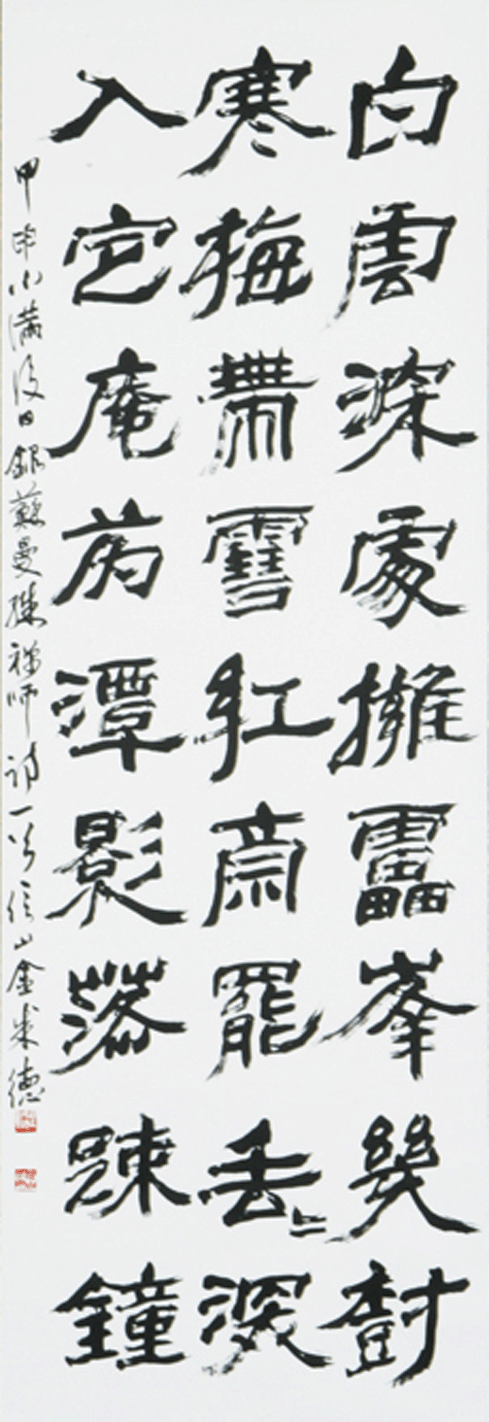 白雲深處擁靁峯幾尌
寒梅帶雪紅齋罷垂〻深
入定庵前潭影落踈鐘
甲申小滿後日錄蘇曼殊禪師詩一首信山金成德